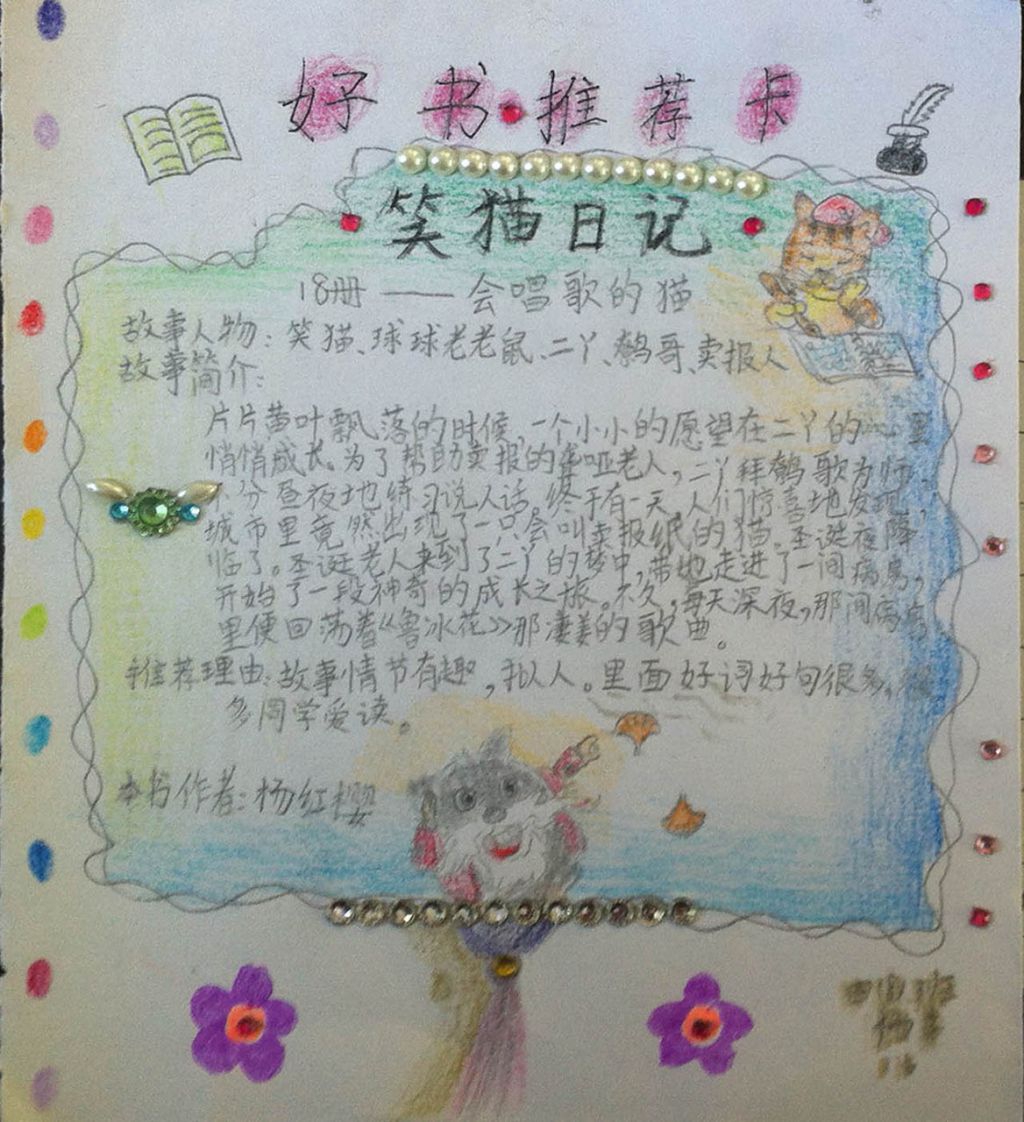 好书推荐卡
笑猫日记
18册——会唱歌的猫
故事人物：笑猫、球球老老鼠、二丫、鹩哥、卖报人
故事简介：
片片黄叶飘落的时候，一个小小的愿望在二丫的心里
悄悄成长。为了帮助卖报的聋哑老人，二丫拜鹩歌为师，
不分昼夜地练习说人话。终于有一天，人们惊喜地发现，
城市里竟然出现了一只会叫卖报纸的猫。圣诞夜降
临了。圣诞老人来到了二丫的梦中，带她走进了一间病房，
开始了一段神奇的成长之旅。不久，每天深夜，那间病房
里便回荡着《鲁冰花》那凄美的歌曲。
推荐理由：故事情节有趣，拟人。里面好词好句很多，
多同学爱读。
本书作者：杨红樱